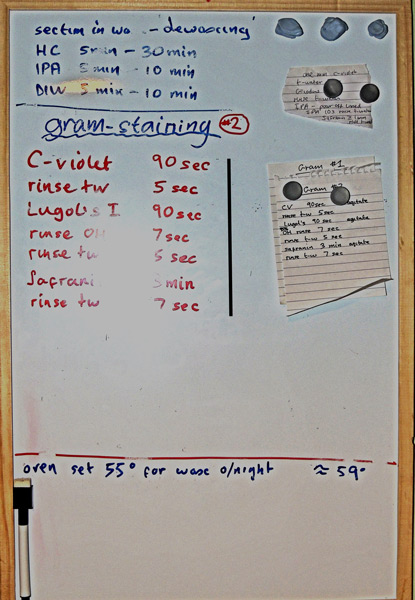 section in wa - 'dewaxing'
HC 5min - 30 min
IPA 5 min - 10 min
DIW 5 min - 10 min
gram-staining #2
C-violet 90 sec
rinse tw 5 sec
Lugol's I 90 sec
rinse OH 7 sec
rinse tw 5 sec
Safrani 3 min
rinse tw 7 sec
oven set 55° for wax o/night ≈ 59°
t-water
Gram #1
Gram #2
CV 90sec agitate
rinse tw 5 sec
Lugol's 90 sec agitate
OH rinse 7 sec
rinse tw 5 sec
safranin 3 min agitate
rinse tw 7 sec